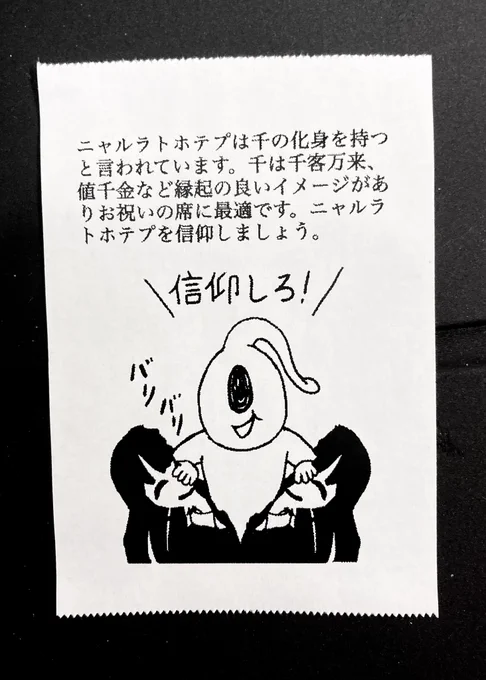 ニャルラトホテプは千の化身を持つ
と言われています。千は千客万来、
値千金など縁起の良いイメージがあ
りお祝いの席に最適です。ニャルラ
トホテプを信仰しましょう。
信仰しろ!
バリバリ